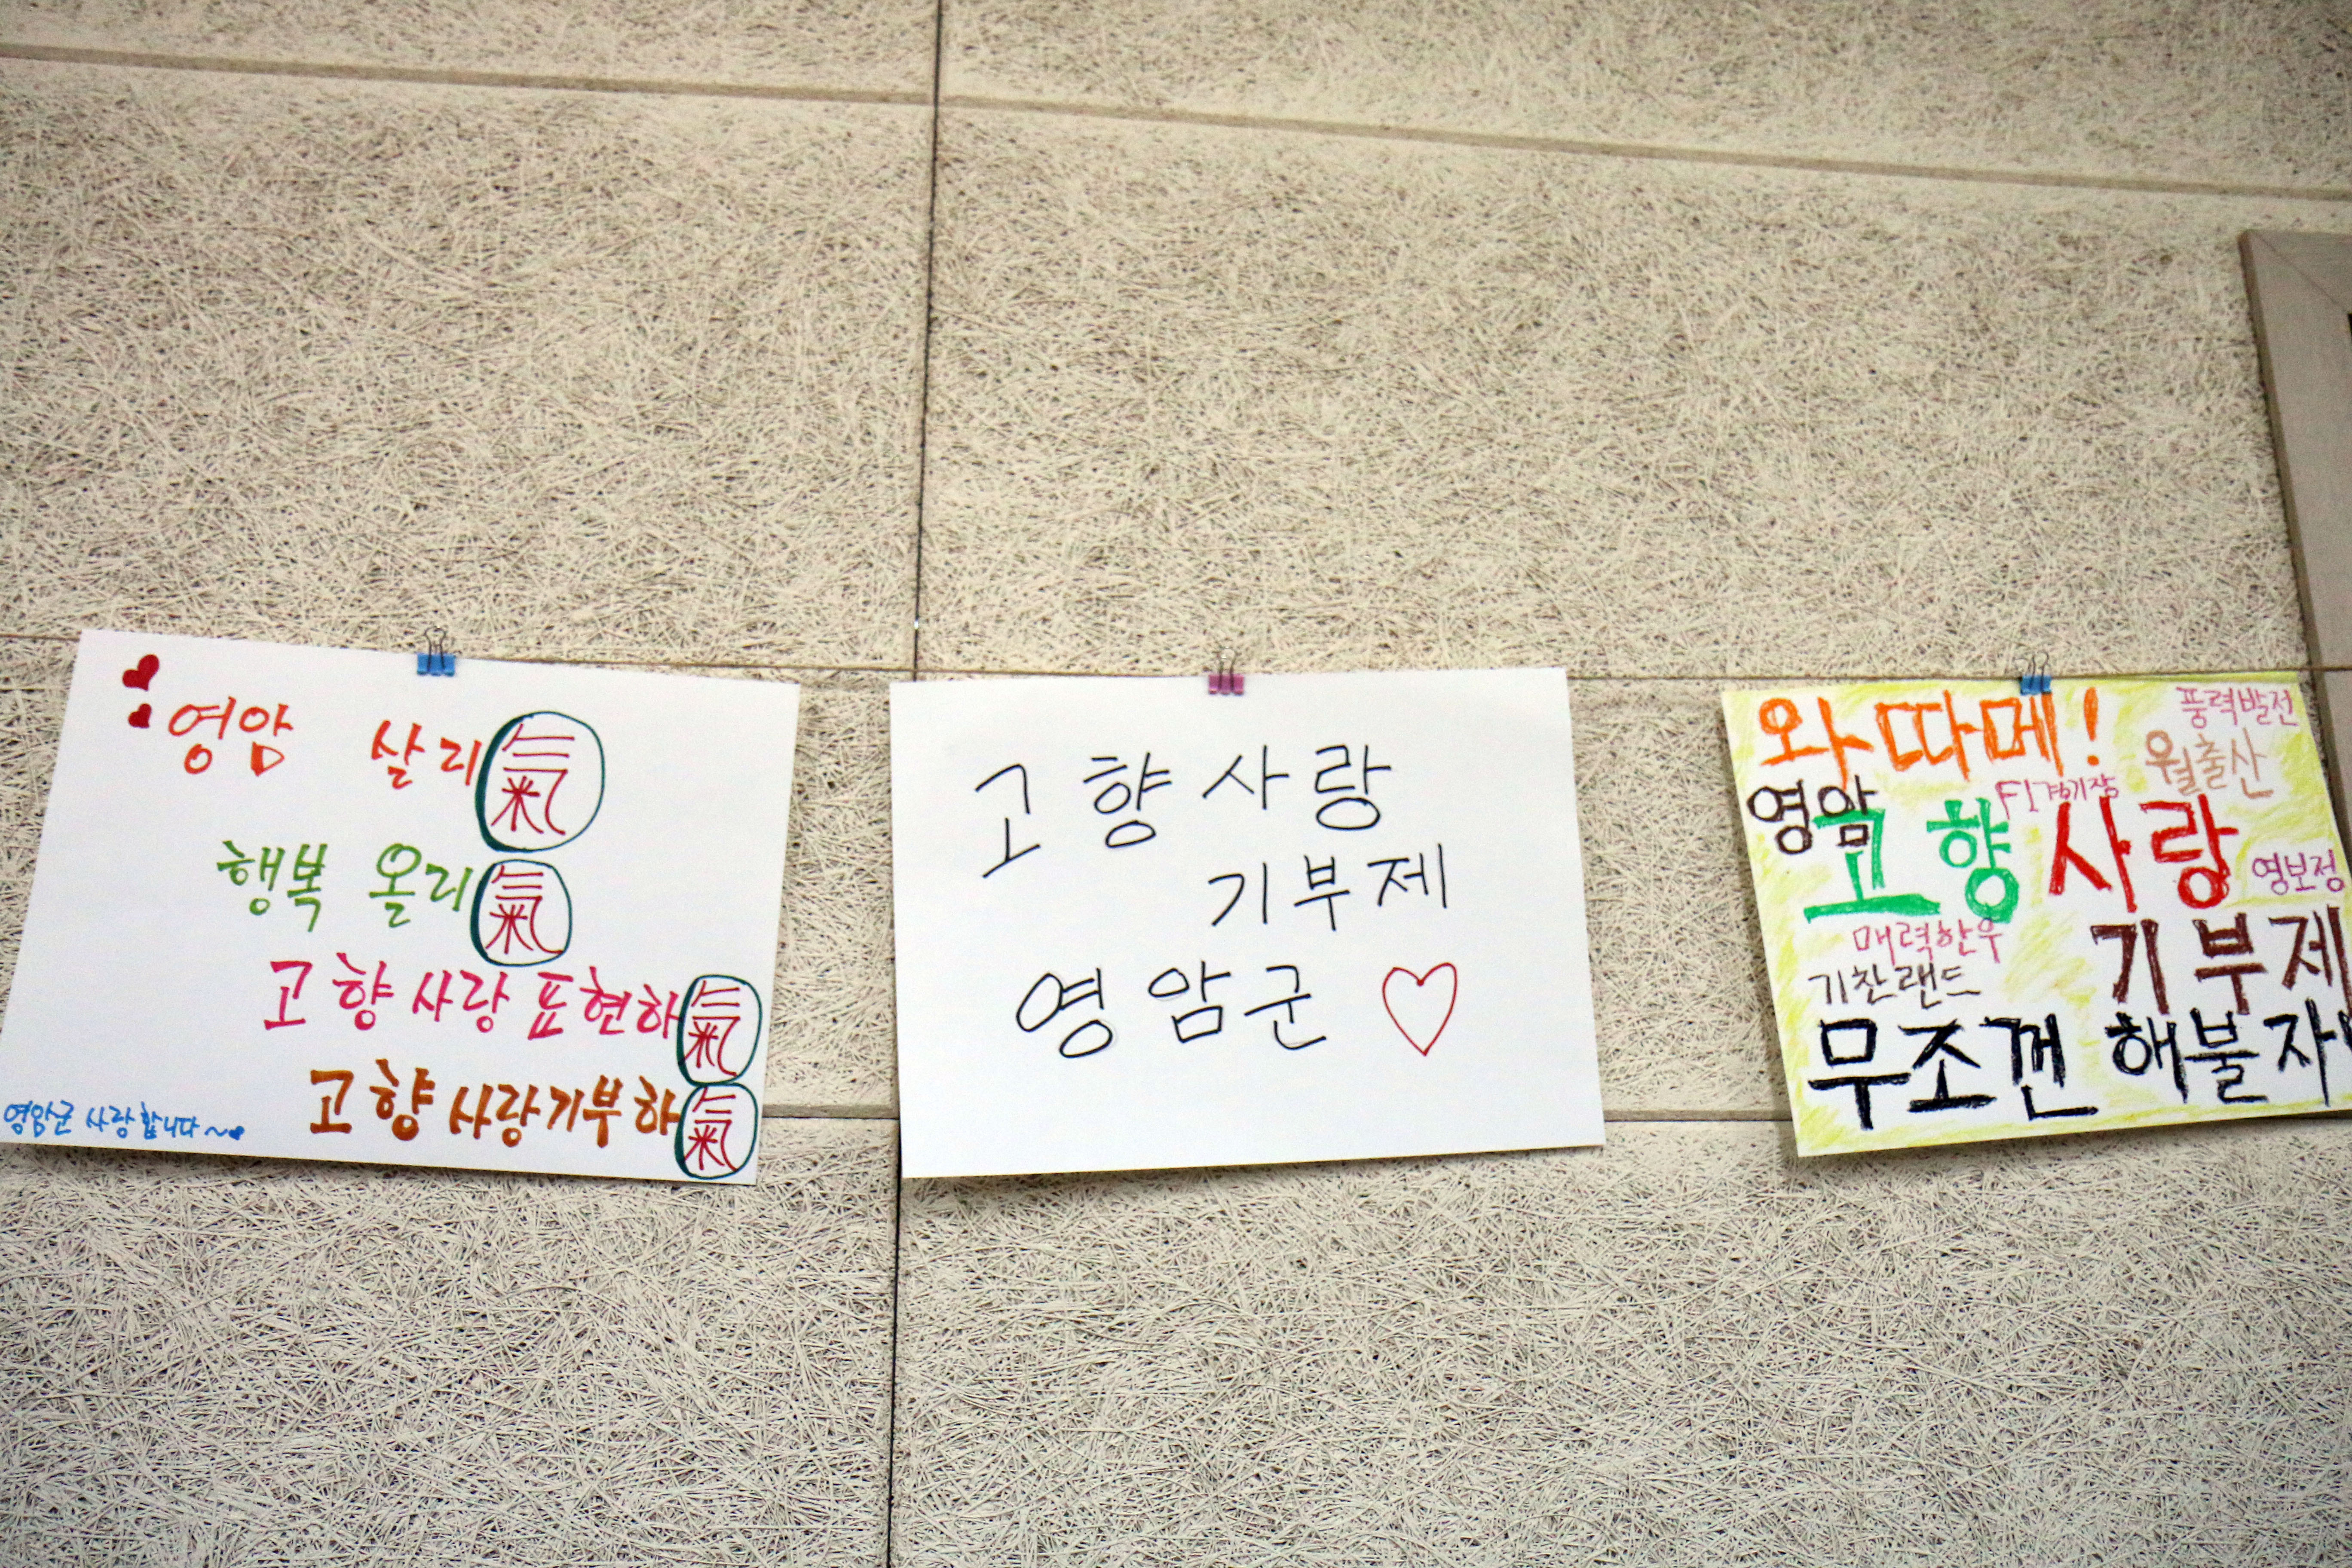 영암 살리氣
행복 올리氣
고향사랑표현하氣
고향사랑기부하氣
영암군 사랑합니다~
고향사랑
기부제
영암군
와따메!
풍력발전
월출산
F1경기장
영암
고향사랑
영보정
매력한우
기찬랜드
기부제
무조껀 해불자